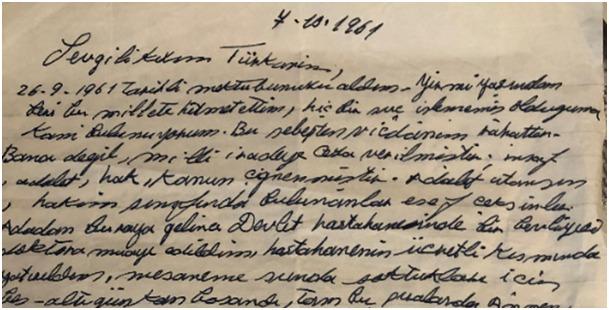 7-10-1961
Sevgili karım Türkanım,
26-9-1961 tarihli mektubunuzu aldım - Yirmi yaşından
beri bu millete hizmet ettim, hiç bir suç işlememiş olduğuma
kani bulunuyorum. Bu sebepten vicdanım rahattır.
Bana değil, milli iradeye ceza verilmiştir. insaf
, adalet, hak, kanun çiğnenmiştir. Adalet utansın
, hakim sınıfında bulunanlar esef çeksinler.
Adadan buraya gelince Devlet hastahanesinde bir
doktora muaye edildim, hastahanenin ücretli kısmında
yatırıldım, mesaneme sonda soktukları için
beş-altı gün kan boşandı, tam bu sıralarda